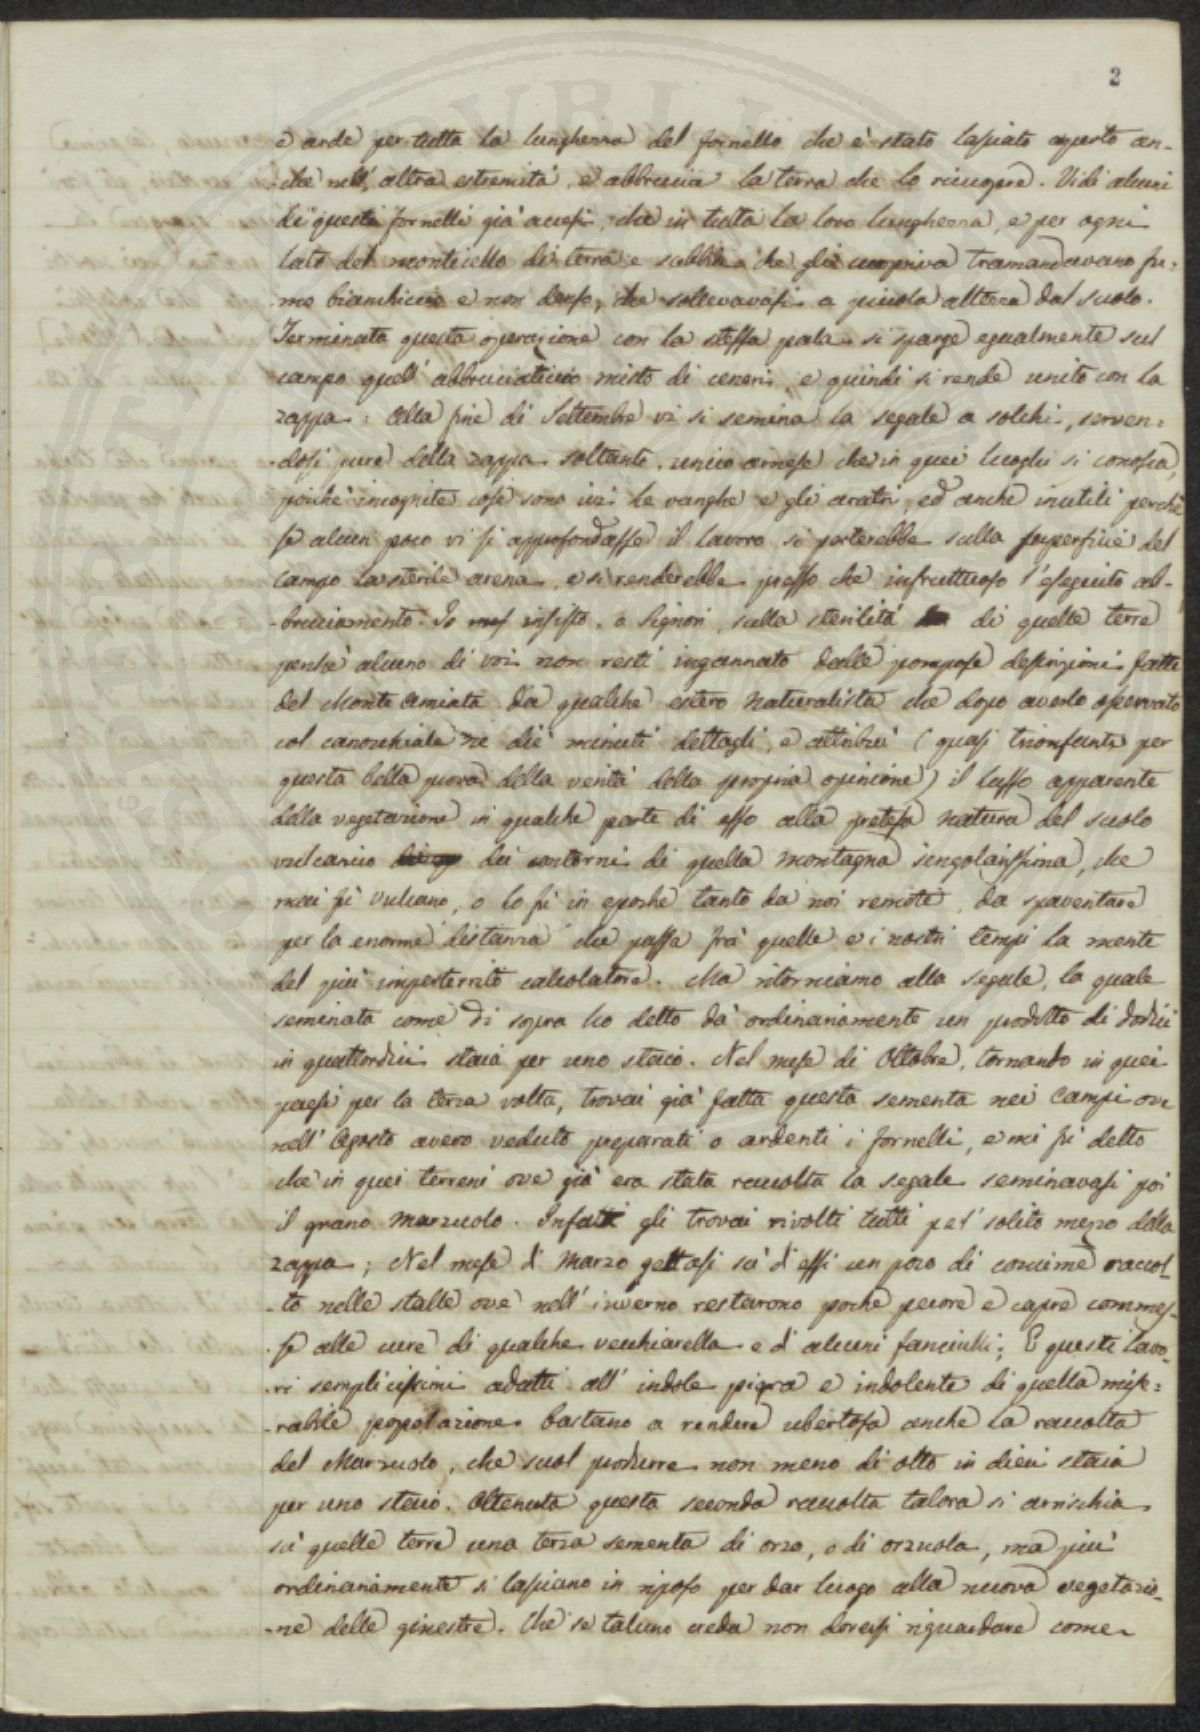 2
e arde per tutta la lunghezza del fornello che è stato lasciato aperto an-
-che nell'altra estremità, e abbrucia la terra che lo ricuopre. Vidi alcuni
di questi fornelli già accesi, che in tutta la loro lunghezza, e per ogni
lato del monticello di terra e sabbia che gli cuopriva tramandavano fu=
-mo bianchiccio e non denso, che sollevavasi a piccola altezza dal suolo.
Terminata questa operazione con la stessa pala si sparge egualmente sul
campo quell'abbruciaticcio misto di ceneri, e quindi si rende unito con la
zappa: Alla fine di Settembre vi si semina la segale a solchi, serven=
-dosi pure della zappa soltanto, unico arnese che in quei luoghi si conosca,
poichè incognite cose sono ivi le vanghe e gli aratri, ed anche inutili perchè
se alcun poco vi si approfondasse il lavoro si porterebbe sulla superficie del
campo la sterile arena, e si renderebbe presso che infruttuoso l'eseguito ab-
-bruciamento. Io insisto, o Signori, sulla sterilità di quelle terre
perchè alcuno di voi non resti ingannato dalle pompose descrizioni fatte
del Monte Amiata da qualche estero Naturalista che dopo averlo osservato
col canocchiale ne diè minuti dettagli, e attribuì (quasi trionfante per
questa bella prova della verità della propria opinione) il lusso apparente
della vegetazione in qualche parte di esso alla pretesa natura del suolo
vulcanico dei contorni di quella montagna singolarissima, che
mai fù Vulcano, o lo fù in epoche tanto da noi remote, da spaventare
per la enorme distanza che passa frà quelle e i nostri tempi la mente
del più imperterrito calcolatore. Ma ritorniamo alla segale, la quale
seminata come di sopra ho detto dà ordinariamente un prodotto di dodici
in quattordici staia per uno staio. Nel mese di Ottobre, tornando in quei
paesi per la terza volta, trovai già fatta questa sementa nei Campi ove
nell'Agosto avevo veduto preparati o ardenti i fornelli, e mi fù detto
che in quei terreni ove già era stata raccolta la segale seminavasi poi
il grano marzuolo. Infatti gli trovai rivolti tutti pel solito mezzo della
zappa; Nel mese di Marzo gettasi sù d'essi un poco di concime raccol-
-to nelle stalle ove nell'inverno restarono poche pecore e capre commes-
-se alle cure di qualche vecchiarella e d'alcuni fanciulli; E questi lavo-
-ri semplicissimi adatti all'indole pigra e indolente di quella mise=
-rabile popolazione bastano a rendere ubertosa anche la raccolta
del Marzuolo, che suol produrre non meno di otto in dieci staia
per uno staio. Ottenuta questa seconda raccolta talora si arrischia
sù quelle terre una terza sementa di orzo, o di orzuola, ma più
ordinariamente si lasciano in riposo per dar luogo alla nuova vegetazio-
-ne delle ginestre. Che se taluno creda non doversi riguardare come